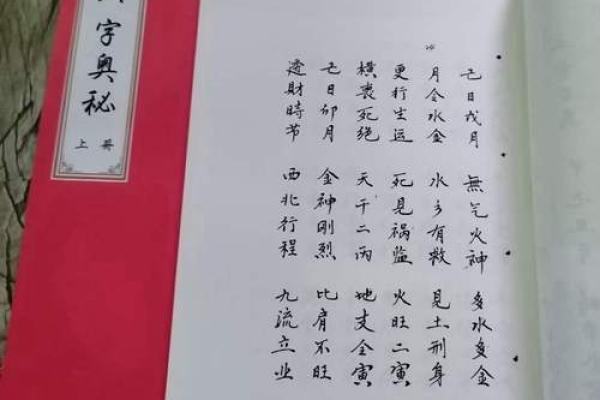 己日戌月 無气火神 多水多金
月令水金 水乡有救 見土刑身
更行生运 死見祸监 火旺二寅
横丧死绝 天干二丙 地支全寅
己日卯月 金神刚烈 比肩不旺
透财時节 西北行程 九流立业
字奥秘
上册